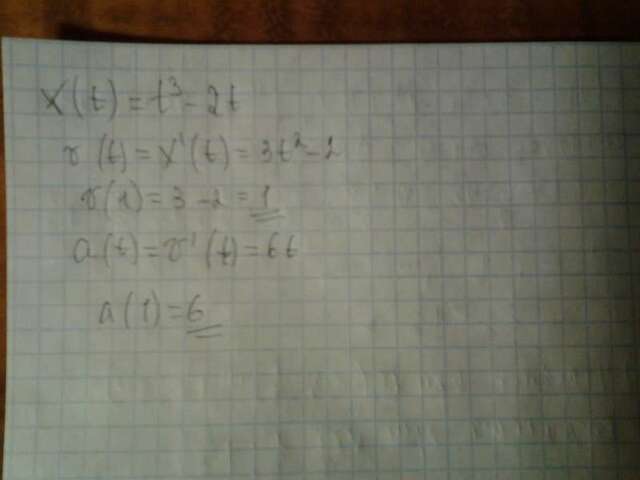 x(t) = t³ - 2t
v(t) = x'(t) = 3t² - 2
v(1) = 3 - 2 = 1
a(t) = v'(t) = 6t
a(1) = 6